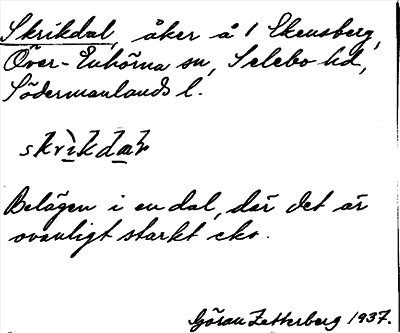 Skrikdal, åker å 1 Ekensberg,
Över-Enhörna sn, Selebo hd,
Södermanlands l.
skrikdal
Belägen i en dal, där det är
ovanligt starkt eko.
Göran Zetterberg 1937.